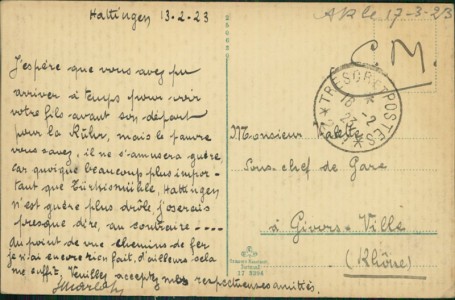 Hattingen 13-2-23
J'espère que vous avez pu
arriver à temps pour voir
votre fils avant son départ
pour la Rühr, mais le pauvre
vous savez, il ne s'amusera guère
car quoique beaucoup plus impor-
tant que Türkismühle, Hattingen
n'est guère plus drôle, j'oserais
presque dire, au contraire ----
Au point de vue chemins de fer
je n'ai encore rien fait, d'ailleurs cela
me suffit, Veuillez acceptez mes respectueuses amitiés.
17-3-23
C.M.
TRESOR ET POSTES
16 -2
23
Monsieur
Sous-chef de Gare
à Givors-Ville
(Rhône)